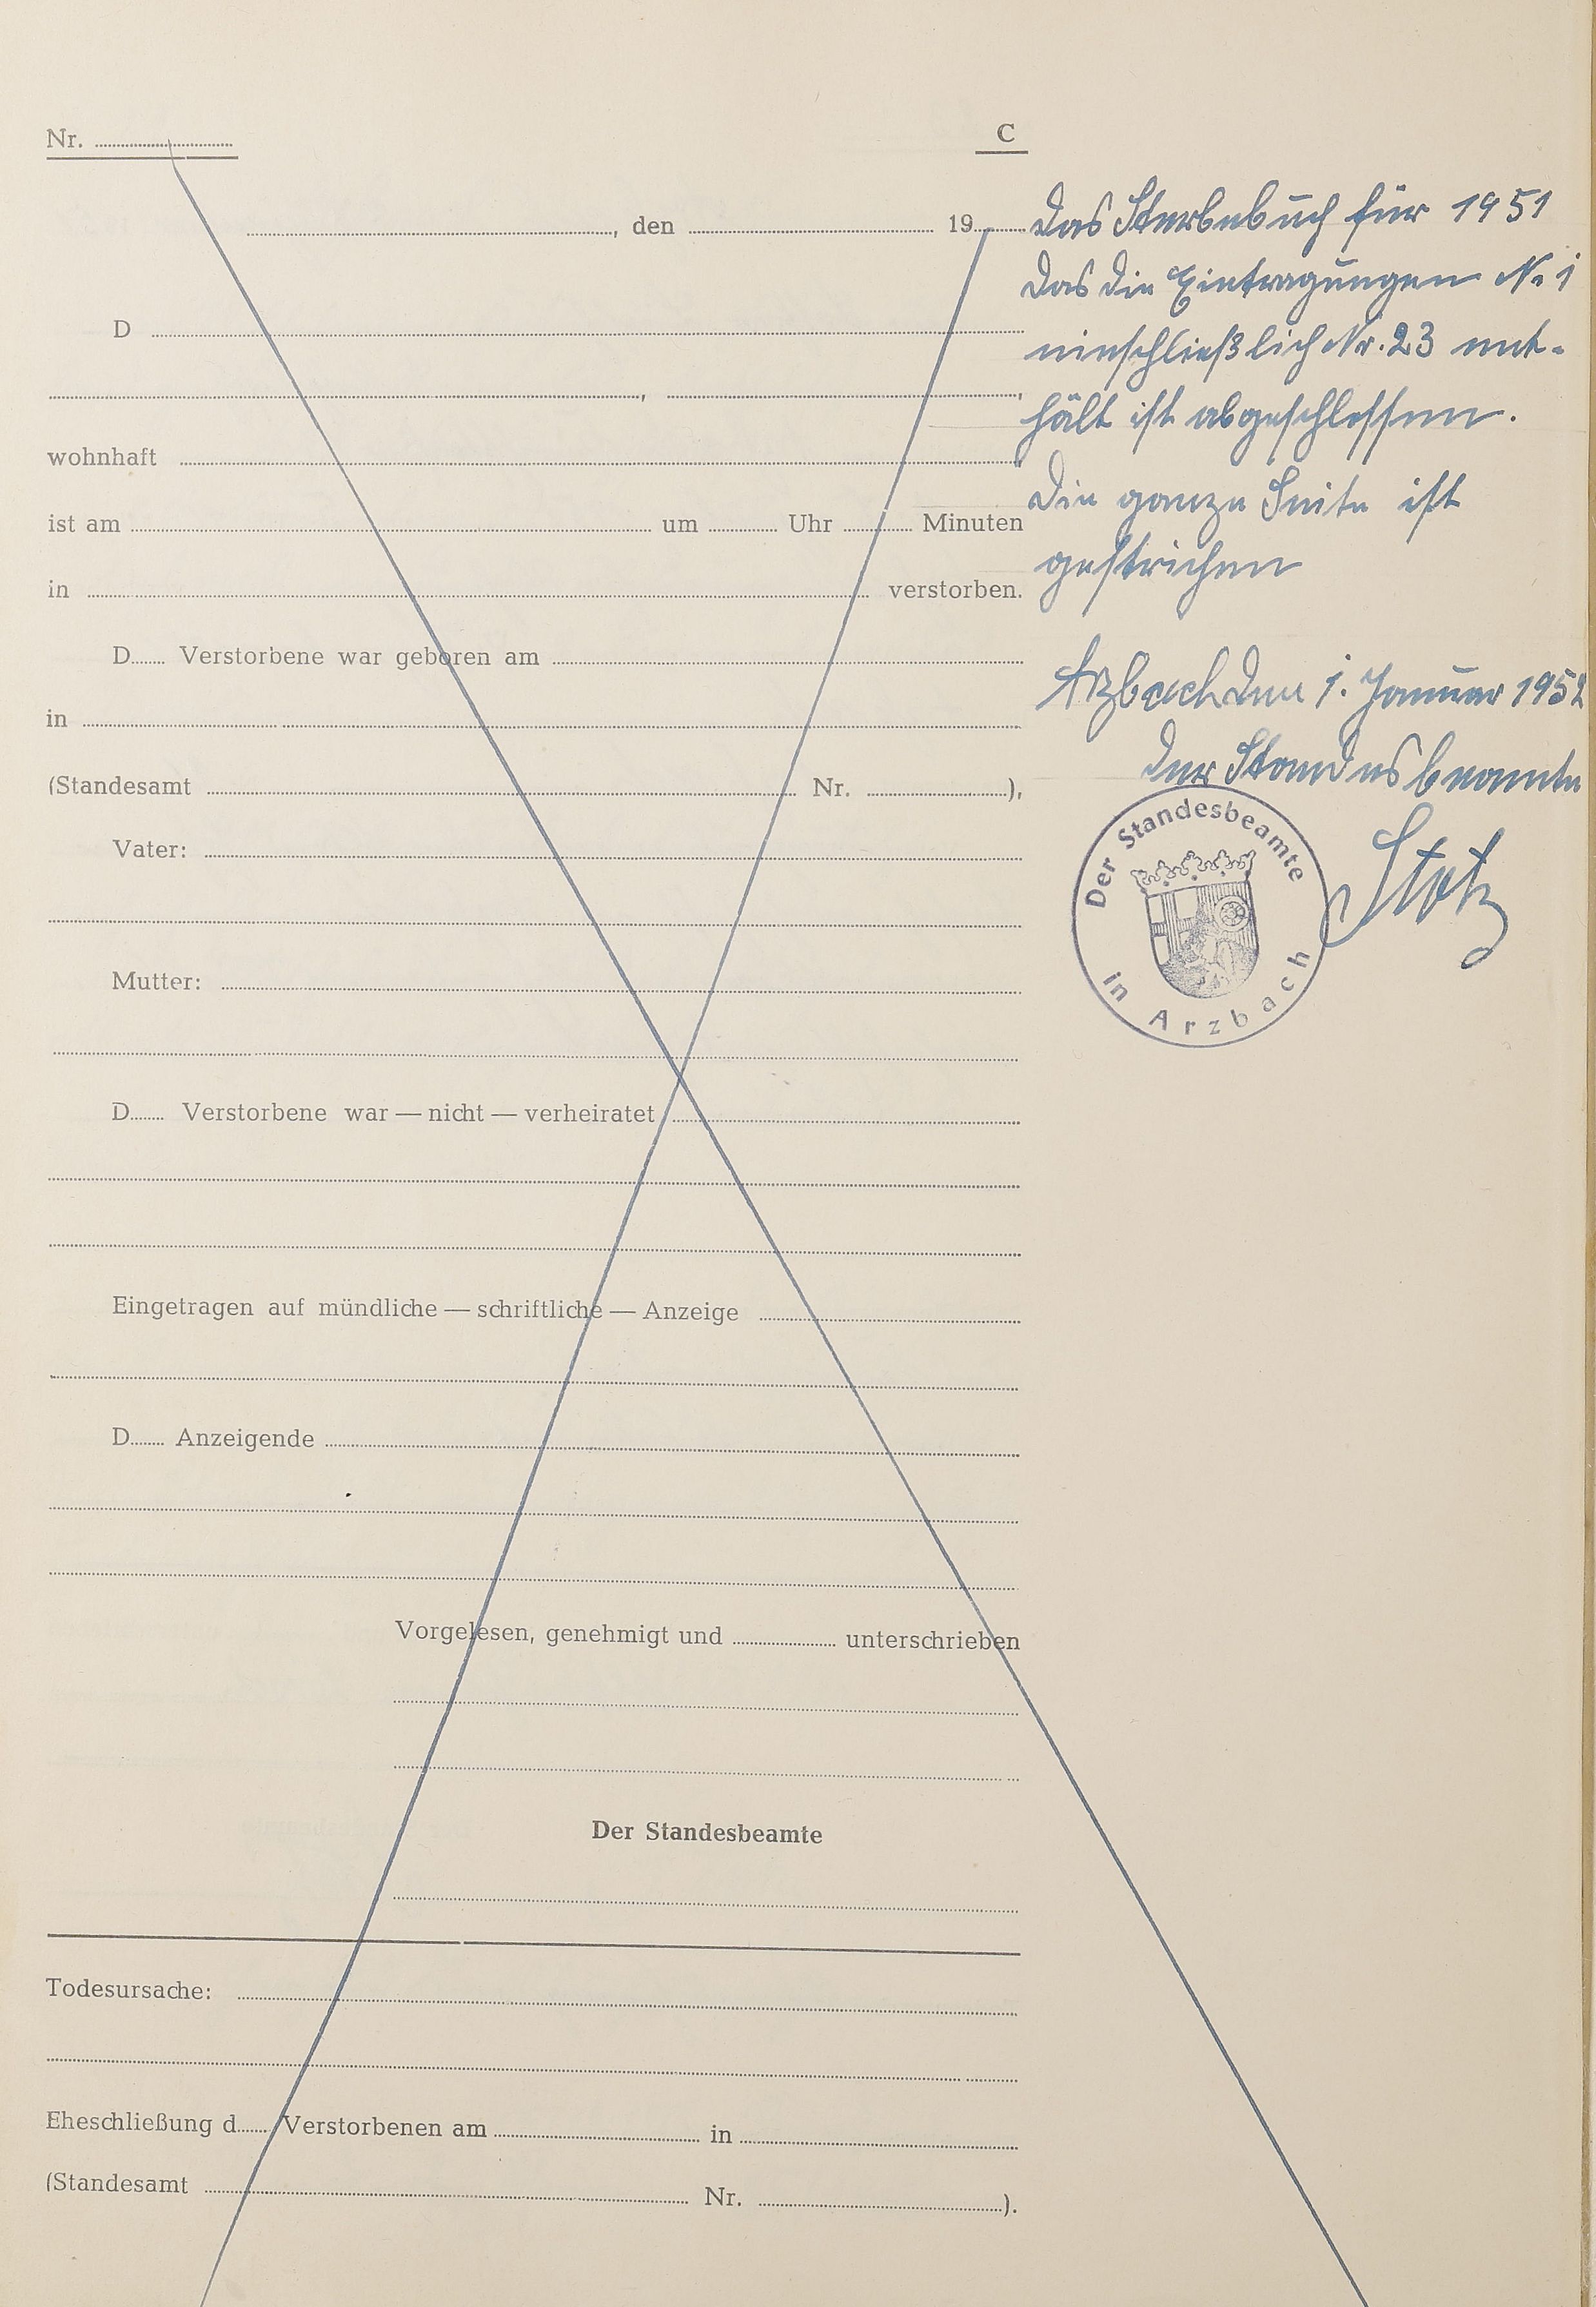 Nr.
C
, den 19
D
,
wohnhaft
ist am um Uhr Minuten
in verstorben.
D Verstorbene war geboren am
in
(Standesamt Nr. ),
Vater:
Mutter:
D Verstorbene war — nicht — verheiratet
Eingetragen auf mündliche — schriftliche — Anzeige
D Anzeigende
Vorgelesen, genehmigt und unterschrieben
Der Standesbeamte
Todesursache:
Eheschließung d Verstorbenen am in
(Standesamt Nr. ).
Das Sterbebuch für 1951
das die Eintragungen N. 1
einschließlich Nr. 23 ent-
hält ist abgeschlossen.
Die ganze Seite ist
gestrichen
Arzbach den 1. Januar 1952
Der Standesbeamte
Stotz
Der Standesbeamte
in Arzbach